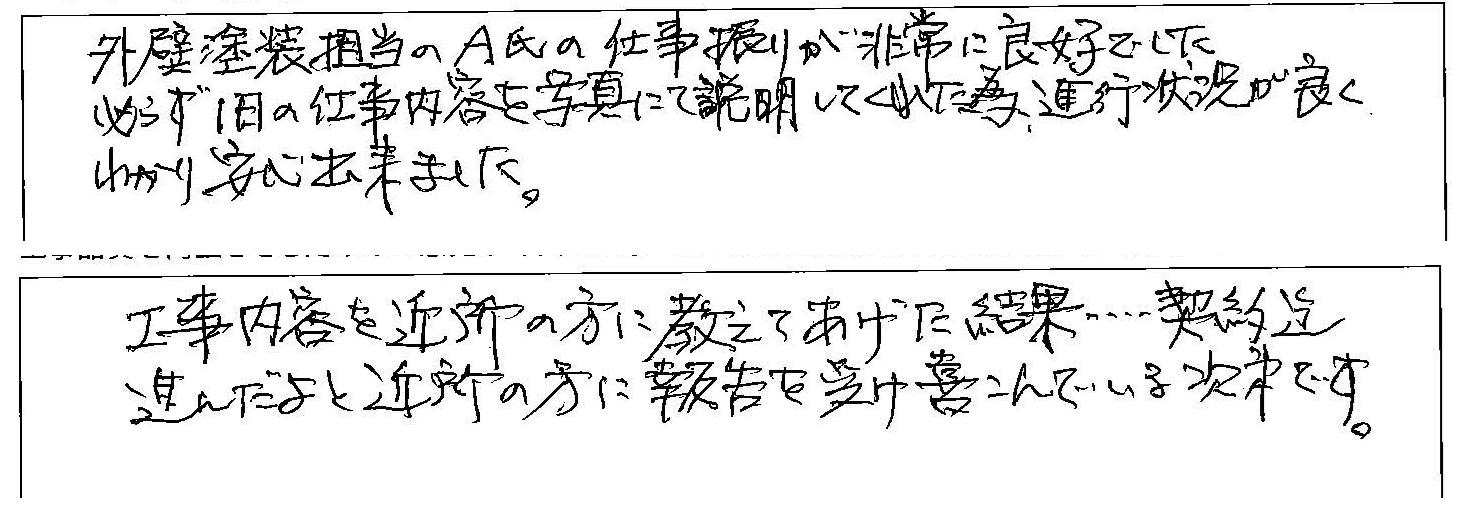 外壁塗装担当のA氏の仕事振りが非常に良好でした
必らず1日の仕事内容を写真にて説明してくれた為、進行状況が良く
わかり安心出来ました。
工事内容を近所の方に教えてあげた結果……契約迄
進んだよと近所の方に報告を受け喜こんでいる次第です。